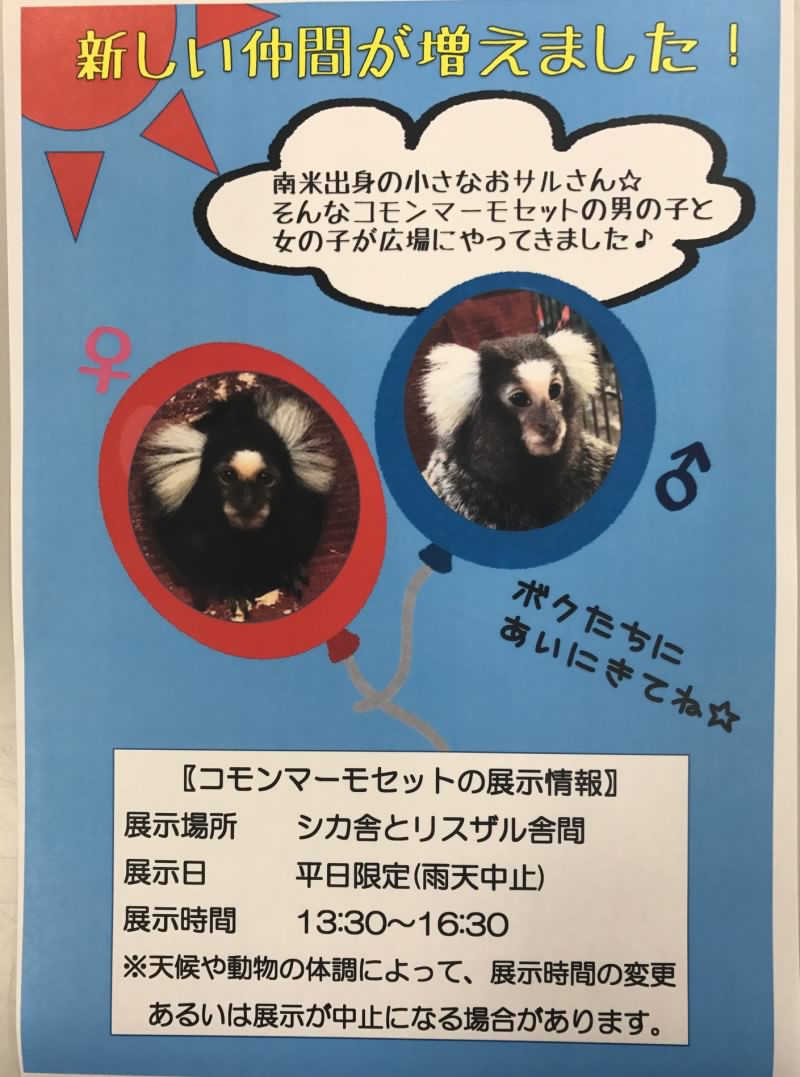 新しい仲間が増えました！
南米出身の小さなおサルさん☆
そんなコモンマーモセットの男の子と
女の子が広場にやってきました♪
♀
♂
ボクたちに
あいにきてね☆
〖コモンマーモセットの展示情報〗
展示場所 シカ舎とリスザル舎間
展示日 平日限定(雨天中止)
展示時間 13:30～16:30
※天候や動物の体調によって、展示時間の変更
あるいは展示が中止になる場合があります。